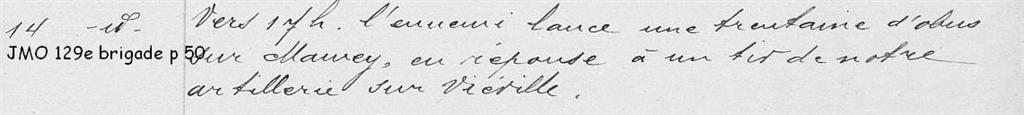 14 -id- Vers 17h. l'ennemi lance une trentaine d'obus
JMO 129e brigade p 50 sur Mamey, en réponse à un tir de notre
artillerie sur Viéville.